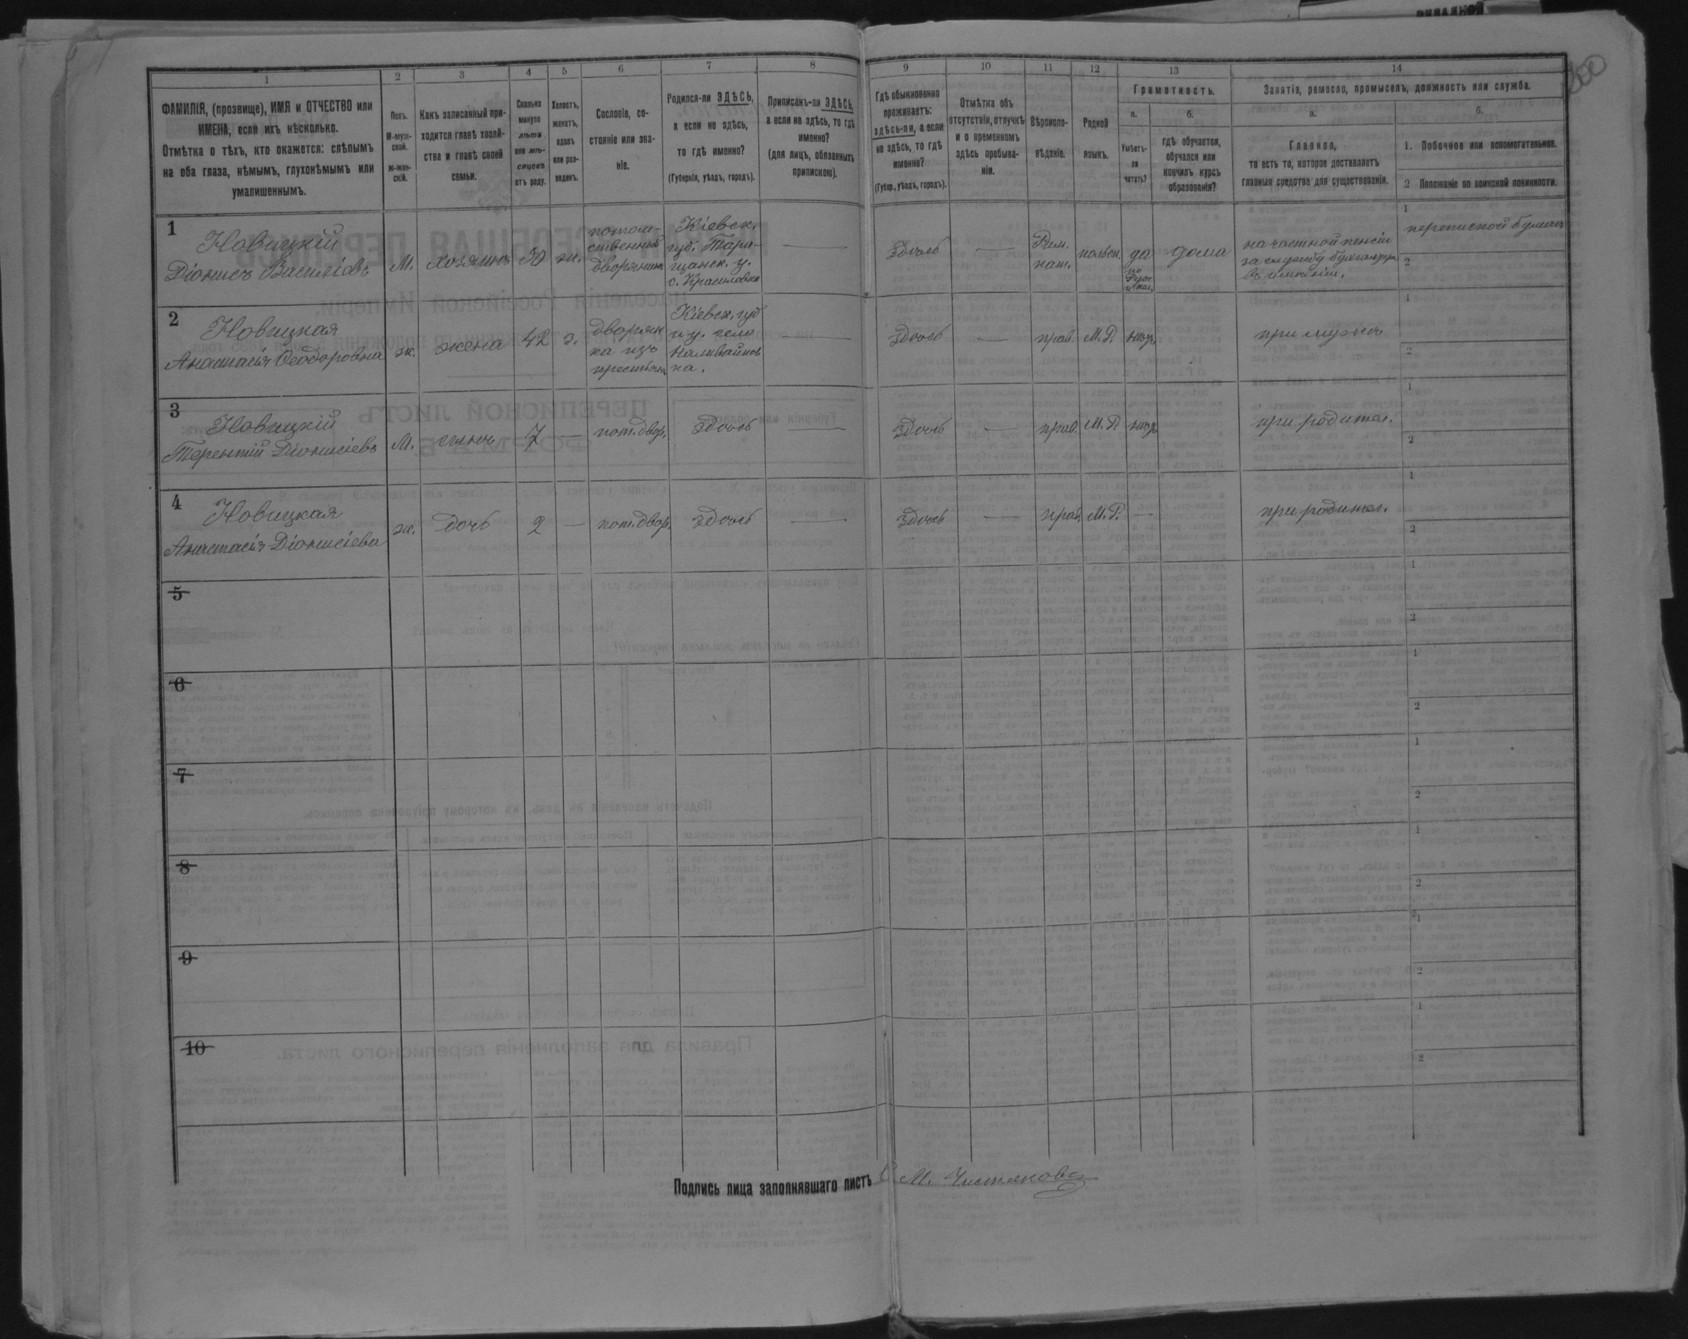 1 2 3 4 5 6 7 8 9 10 11 12 13 14
ФАМИЛІЯ, (прозвище), ИМЯ и ОТЧЕСТВО или
ИМЕНА, если ихъ нѣсколько.
Отмѣтка о тѣхъ, кто окажется: слѣпымъ
на оба глаза, нѣмымъ, глухонѣмымъ или
умалишеннымъ.
Полъ.
М-муж-
ской.
ж-жен-
скій.
Какъ записанный при-
ходится главѣ хозяй-
ства и главѣ своей
семьи.
Сколько
минуло
лѣтъ
или мѣ-
сяцевъ
отъ роду.
Холостъ,
женатъ,
вдовъ
или раз-
веденъ.
Сословіе, со-
стояніе или зва-
ніе.
Родился-ли ЗДѢСЬ,
а если не здѣсь,
то гдѣ именно?
(Губернія, уѣздъ, городъ).
Приписанъ-ли ЗДѢСЬ,
а если не здѣсь, то гдѣ
именно?
(для лицъ, обязанныхъ
припискою).
Гдѣ обыкновенно
проживаетъ:
здѣсь-ли, а если
не здѣсь, то гдѣ
именно?
(Губер., уѣздъ, городъ).
Отмѣтка объ
отсутствіи, отлучкѣ
и о временномъ
здѣсь пребыва-
ніи.
Вѣроиспо-
вѣданіе.
Родной
языкъ.
Грамотность.
а.
Умѣетъ-
ли
читать?
б.
гдѣ обучается,
обучался или
кончилъ курсъ
образованія?
Занятіе, ремесло, промыселъ, должность или служба.
а.
Главное,
то есть то, которое доставляетъ
главныя средства для существованія.
б.
1. Побочное или вспомогательное.
2 Положеніе по воинской повинности.
1
Новицкій
Діонисъ Василіевъ
М.
хозяинъ
50
ж.
потом-
ственный
дворянинъ
Кіевск.
губ. Тара-
щанск. у.
здѣсь
Рим.
кат.
польск.
да
дома
на частной пенсіи
1
2
2
Новицкая
Анастасія Ѳеодоровна
ж.
жена
42
з.
дворян
ка изъ
крестьян
Кіевск. губ
и у. село
здѣсь
прав.
М.Р.
нѣтъ
при мужѣ
1
2
3
Новицкій
Терентій Діонисіевъ
М.
сынъ
7
пот.двор.
здѣсь
здѣсь
прав.
М.Р.
нѣтъ
при родител.
1
2
4
Новицкая
Анастасія Діонисіева
ж.
дочь
2
пот.двор.
здѣсь
здѣсь
прав.
М.Р.
при родител.
1
2
5
1
2
6
1
2
7
1
2
8
1
2
9
1
2
10
1
2
Подпись лица заполнявшаго листъ М. Чистяковъ